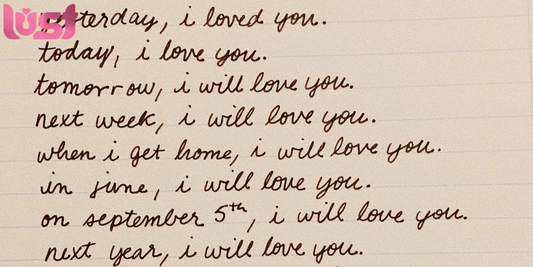 yesterday, i loved you.
today, i love you.
tomorrow, i will love you.
next week, i will love you.
when i get home, i will love you.
in june, i will love you.
on september 5th, i will love you.
next year, i will love you.